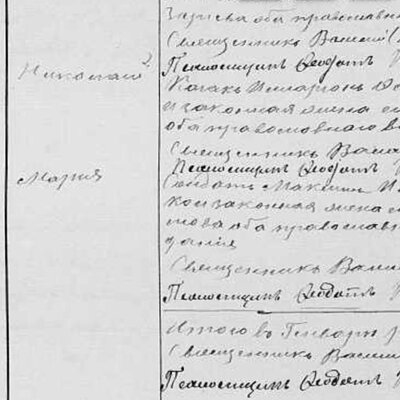 Николай
Мария
оба православн
Священникъ Васил
Псаломщикъ Ѳеодотъ
Казакъ Илларіонъ
и законная жена е
оба православнаго в
Священникъ Васи
Псаломщикъ Ѳеодотъ
Солдатъ Максимъ И
кой законная жена
това оба православн
данія
Священникъ Васил
Псаломщикъ Ѳеодотъ
Итого въ Генварѣ
Священникъ Васил
Псаломщикъ Ѳеодотъ